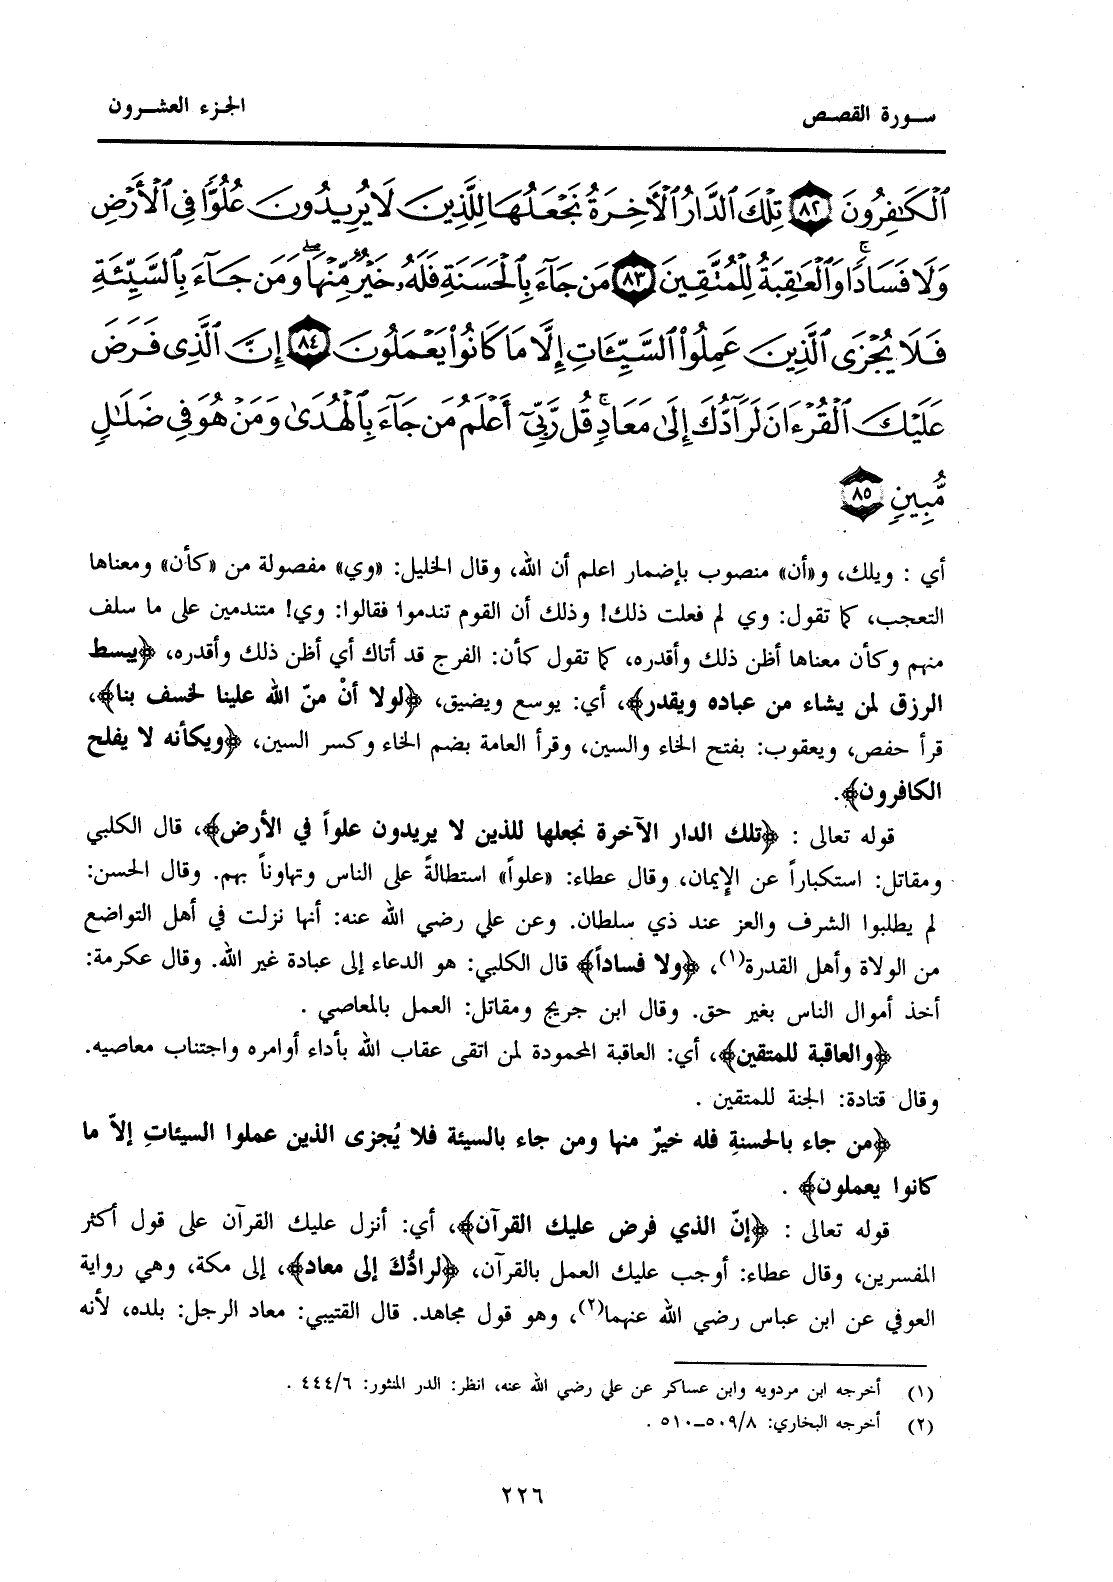 سورة القصص
الجزء العشرون
ٱلْكَٰفِرُونَ ٨٢ تِلْكَ ٱلدَّارُ ٱلْأَخِرَةُ نَجْعَلُهَا لِلَّذِينَ لَا يُرِيدُونَ عُلُوًّا فِي ٱلْأَرْضِ
وَلَا فَسَادًا ۚ وَٱلْعَٰقِبَةُ لِلْمُتَّقِينَ ٨٣ مَن جَآءَ بِٱلْحَسَنَةِ فَلَهُۥ خَيْرٌ مِّنْهَا ۖ وَمَن جَآءَ بِٱلسَّيِّئَةِ
فَلَا يُجْزَى ٱلَّذِينَ عَمِلُوا۟ ٱلسَّيِّـَٔاتِ إِلَّا مَا كَانُوا۟ يَعْمَلُونَ ٨٤ إِنَّ ٱلَّذِى فَرَضَ
عَلَيْكَ ٱلْقُرْءَانَ لَرَآدُّكَ إِلَىٰ مَعَادٍ ۚ قُل رَّبِّىٓ أَعْلَمُ مَن جَآءَ بِٱلْهُدَىٰ وَمَنْ هُوَ فِى ضَلَٰلٍ
مُّبِينٍ ٨٥
أي : ويلك، و«أن» منصوب بإضمار اعلم أن الله، وقال الخليل: «وي» مفصولة من «كأن» ومعناها
التعجب، كما تقول: وي لم فعلت ذلك! وذلك أن القوم تندموا فقالوا: وي! متندمين على ما سلف
منهم وكأن معناها أظن ذلك وأقدره، كما تقول كأن: الفرج قد أتاك أي أظن ذلك وأقدره، ﴿يبسط
الرزق لمن يشاء من عباده ويقدر﴾، أي: يوسع ويضيق، ﴿لولا أنْ منّ الله علينا لخسف بنا﴾،
قرأ حفص، ويعقوب: بفتح الخاء والسين، وقرأ العامة بضم الخاء وكسر السين، ﴿ويكأنه لا يفلح
الكافرون﴾.
قوله تعالى : ﴿تلك الدار الآخرة نجعلها للذين لا يريدون علواً في الأرض﴾، قال الكلبي
ومقاتل: استكباراً عن الإيمان، وقال عطاء: «علواً» استطالةً على الناس وتهاوناً بهم. وقال الحسن:
لم يطلبوا الشرف والعز عند ذي سلطان. وعن علي رضي الله عنه: أنها نزلت في أهل التواضع
من الولاة وأهل القدرة(١)، ﴿ولا فساداً﴾ قال الكلبي: هو الدعاء إلى عبادة غير الله. وقال عكرمة:
أخذ أموال الناس بغير حق. وقال ابن جريج ومقاتل: العمل بالمعاصي .
﴿والعاقبة للمتقين﴾، أي: العاقبة المحمودة لمن اتقى عقاب الله بأداء أوامره واجتناب معاصيه.
وقال قتادة: الجنة للمتقين .
﴿من جاء بالحسنةِ فله خيرٌ منها ومن جاء بالسيئة فلا يُجزى الذين عملوا السيئاتِ إلاّ ما
كانوا يعملون﴾ .
قوله تعالى : ﴿إنّ الذي فرض عليك القرآن﴾، أي: أنزل عليك القرآن على قول أكثر
المفسرين، وقال عطاء: أوجب عليك العمل بالقرآن، ﴿لرادُّكَ إلى معاد﴾، إلى مكة، وهي رواية
العوفي عن ابن عباس رضي الله عنهما(٢)، وهو قول مجاهد. قال القتيبي: معاد الرجل: بلده، لأنه
(١) أخرجه ابن مردويه وابن عساكر عن علي رضي الله عنه، انظر: الدر المنثور: ٤٤٤/٦ .
(٢) أخرجه البخاري: ٥٠٩/٨ــ٥١٠ .
٢٢٦